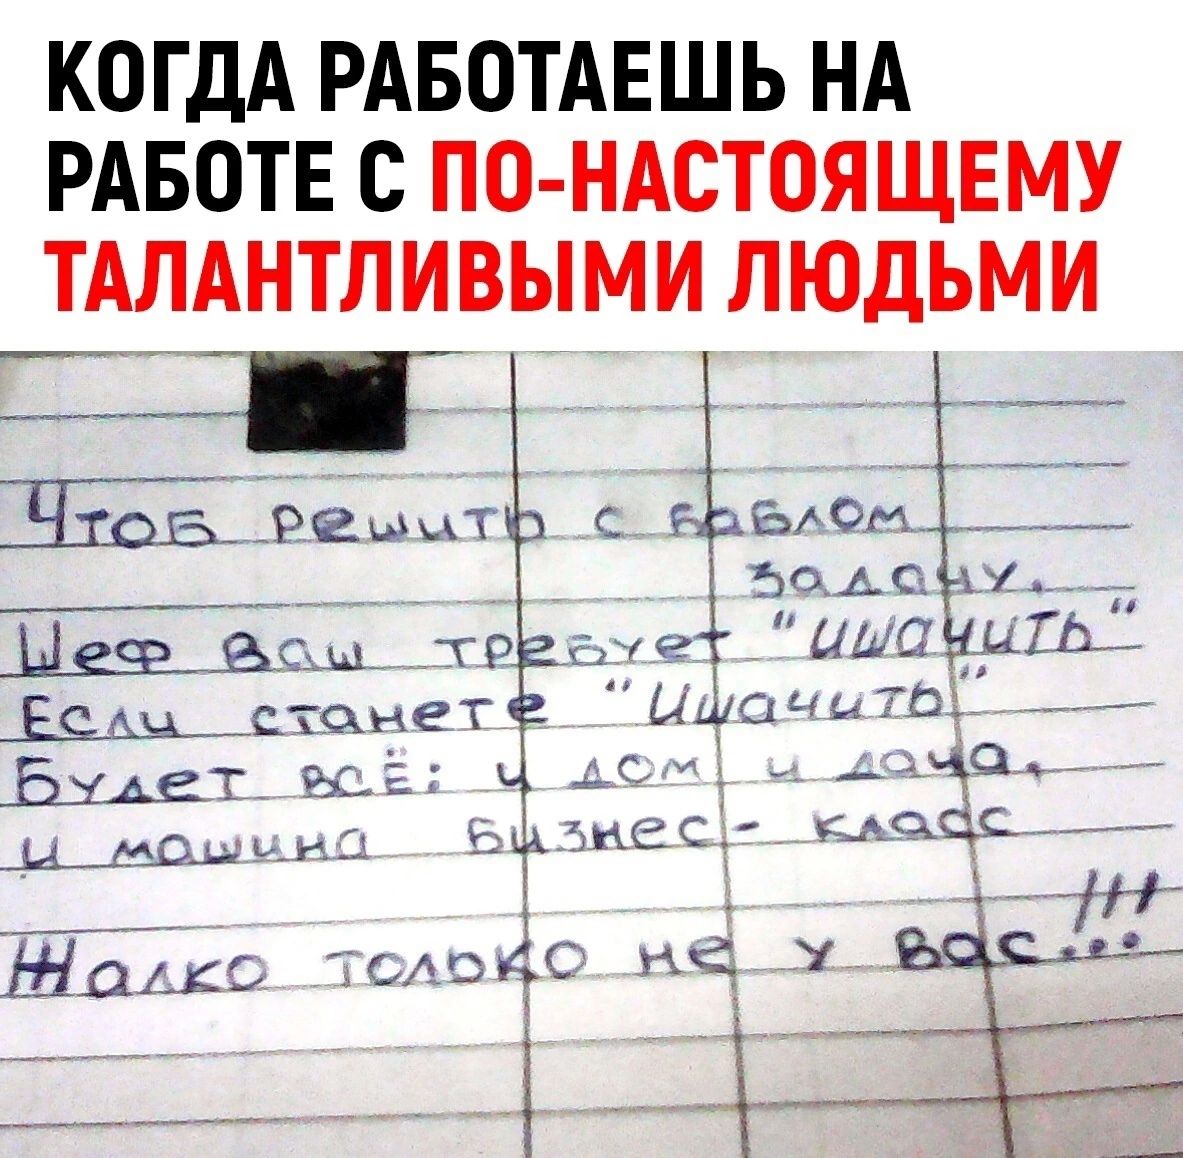 КОГДА РАБОТАЕШЬ НА
РАБОТЕ С ПО-НАСТОЯЩЕМУ
ТАЛАНТЛИВЫМИ ЛЮДЬМИ
Чтоб решить с баблом
задачу,
Шеф ваш требует "ишачить"
Если станете "Ишачить"
Будет всЁ: и дом и дача,
и машина бизнес-класс
Жалко только не у вас!!!